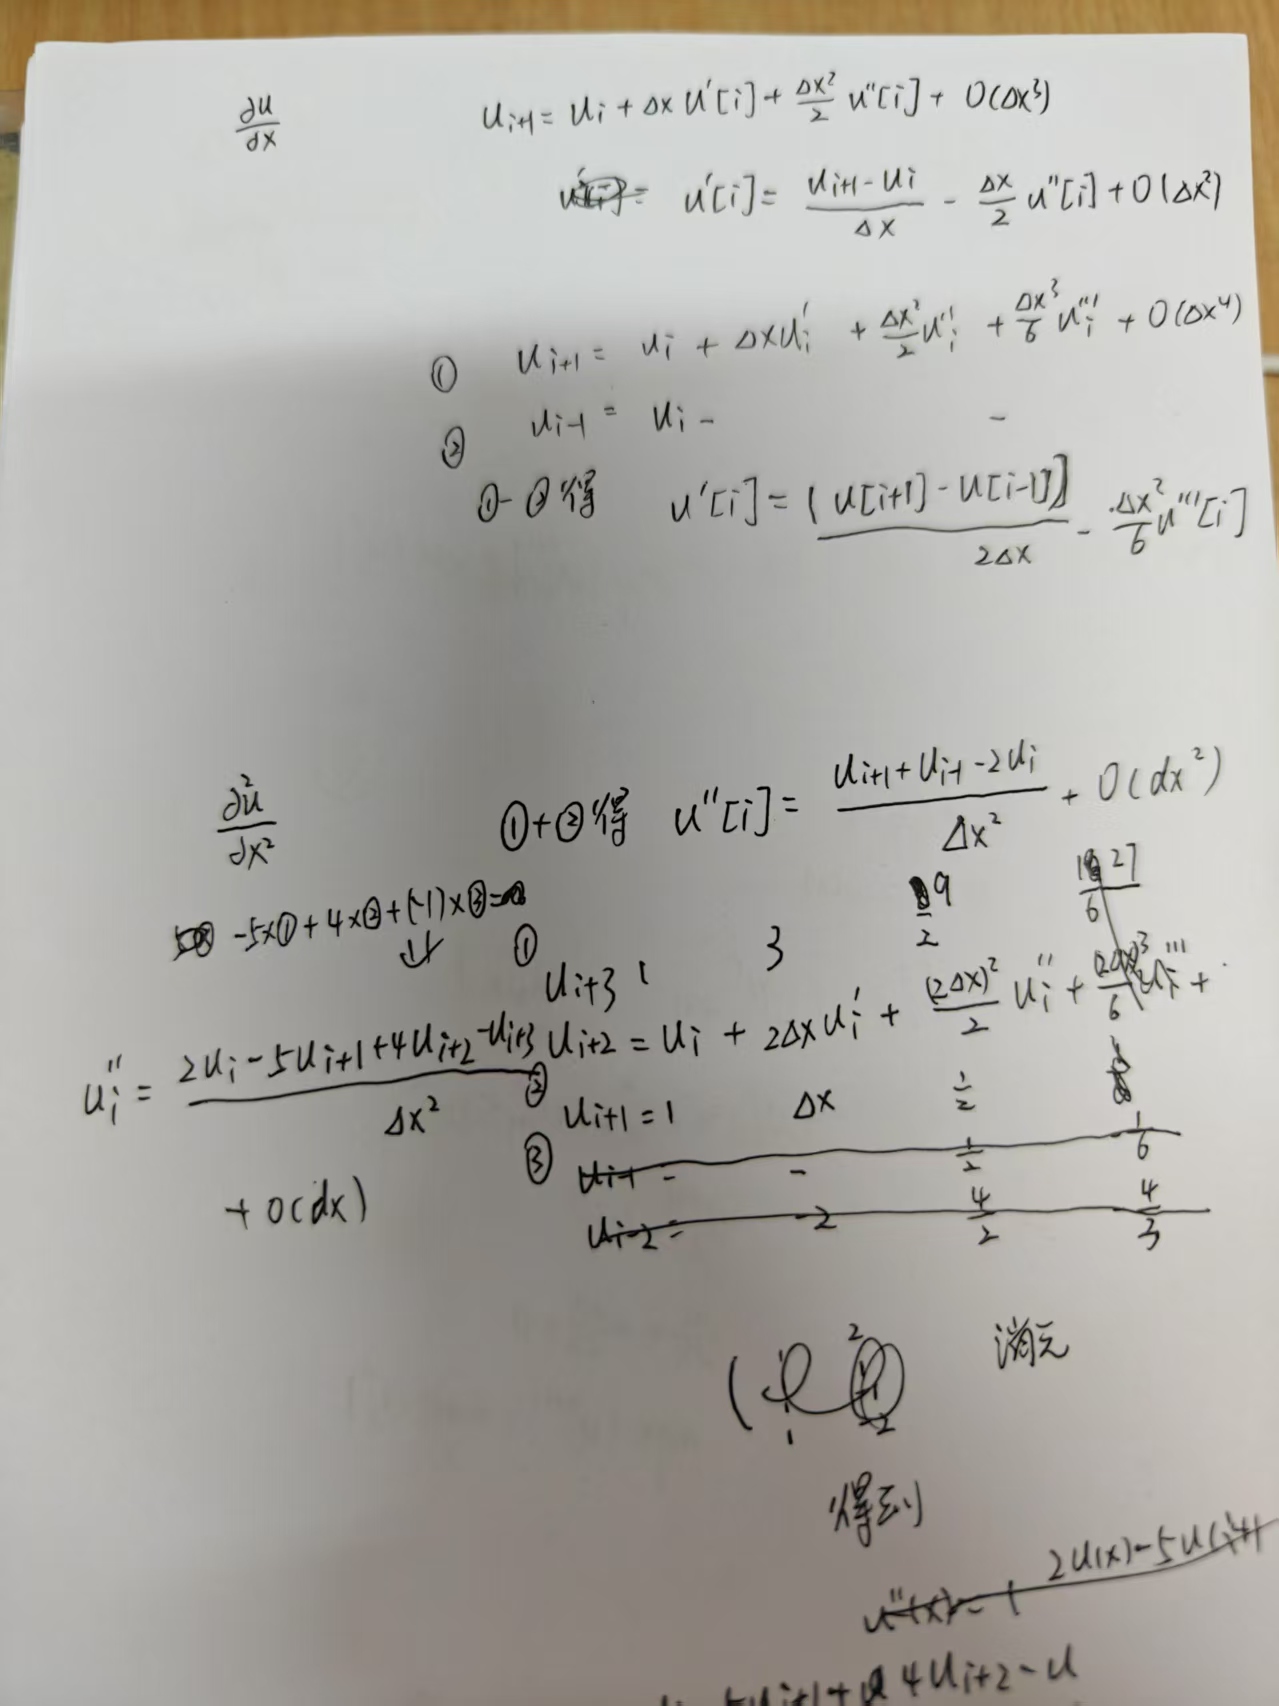 ∂u/∂x
u_{i+1} = u_i + Δx u'[i] + Δx²/2 u''[i] + O(Δx³)
u'[i] = (u_{i+1} - u_i)/Δx - Δx/2 u''[i] + O(Δx²)
① u_{i+1} = u_i + Δx u_i' + Δx²/2 u_i'' + Δx³/6 u_i''' + O(Δx⁴)
② u_{i-1} = u_i - -
①-②得 u'[i] = (u[i+1] - u[i-1])/2Δx - Δx²/6 u'''[i]
∂²u/∂x²
①+②得 u''[i] = (u_{i+1} + u_{i-1} - 2u_i)/Δx² + O(dx²)
-5×①+4×②+(-1)×③=
① u_{i+3} 1 3 9/2 27/6
u_{i+2} = u_i + 2Δx u_i' + (2Δx)²/2 u_i'' + (2Δx)³/6 u_i''' +
u_i'' = (2u_i - 5u_{i+1} + 4u_{i+2} - u_{i+3})/Δx²
② u_{i+1} = 1 Δx 1/2
③ u_{i-1} = - 1/2 1/6
+ O(dx)
u_{i-2} = -2 4/2 4/3
消元
得到
u''(x) = 2u(x) - 5u(i+1)
5u_{i+1} + 4u_{i+2} - u